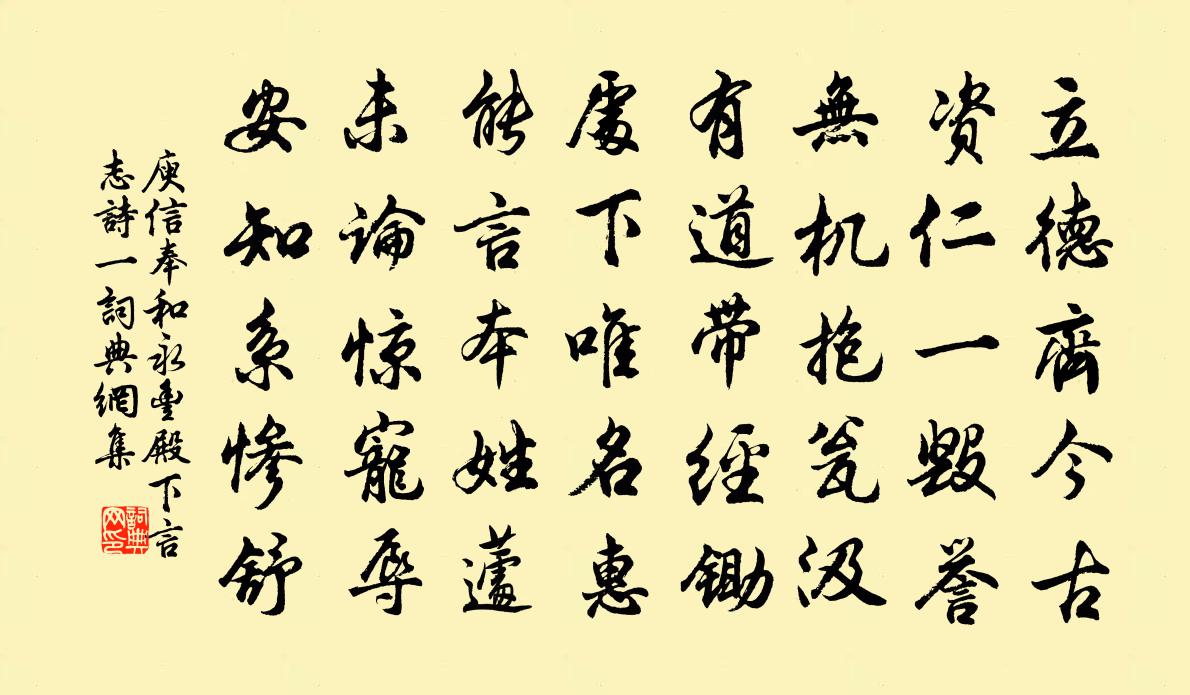 立德齊今古
资仁一毀誉
無机抱瓮汲
有道带經鋤
處下唯名惠
能言本姓蘧
未論惊寵辱
安知系慘舒
庾信奉和永豊殿下言
志詩一詞典網集
詞典
网印